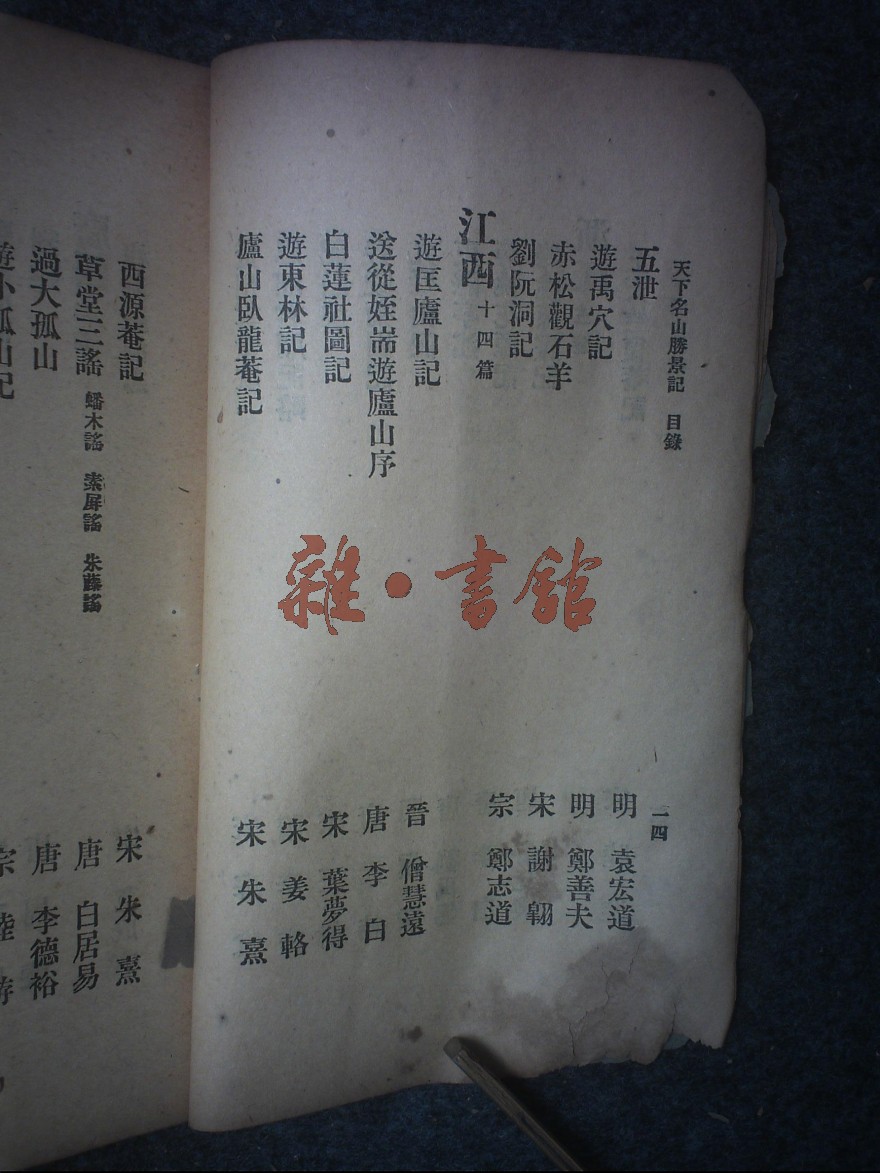 天下名山勝景記 目錄 一四
五泄 明 袁宏道
遊禹穴記 明 鄭善夫
赤松觀石羊 宋 謝翶
劉阮洞記 宗 鄭志道
江西 十四篇
遊匡廬山記 晉 僧慧遠
送從姪耑遊廬山序 唐 李白
白蓮社圖記 宋 葉夢得
遊東林記 宋 姜輅
廬山臥龍菴記 宋 朱熹
西源菴記 宋 朱熹
草堂三謠 蟠木謠 素屏謠 朱藤謠 唐 白居易
過大孤山 唐 李德裕
遊小孤山記 宗 陸游
雜·書館